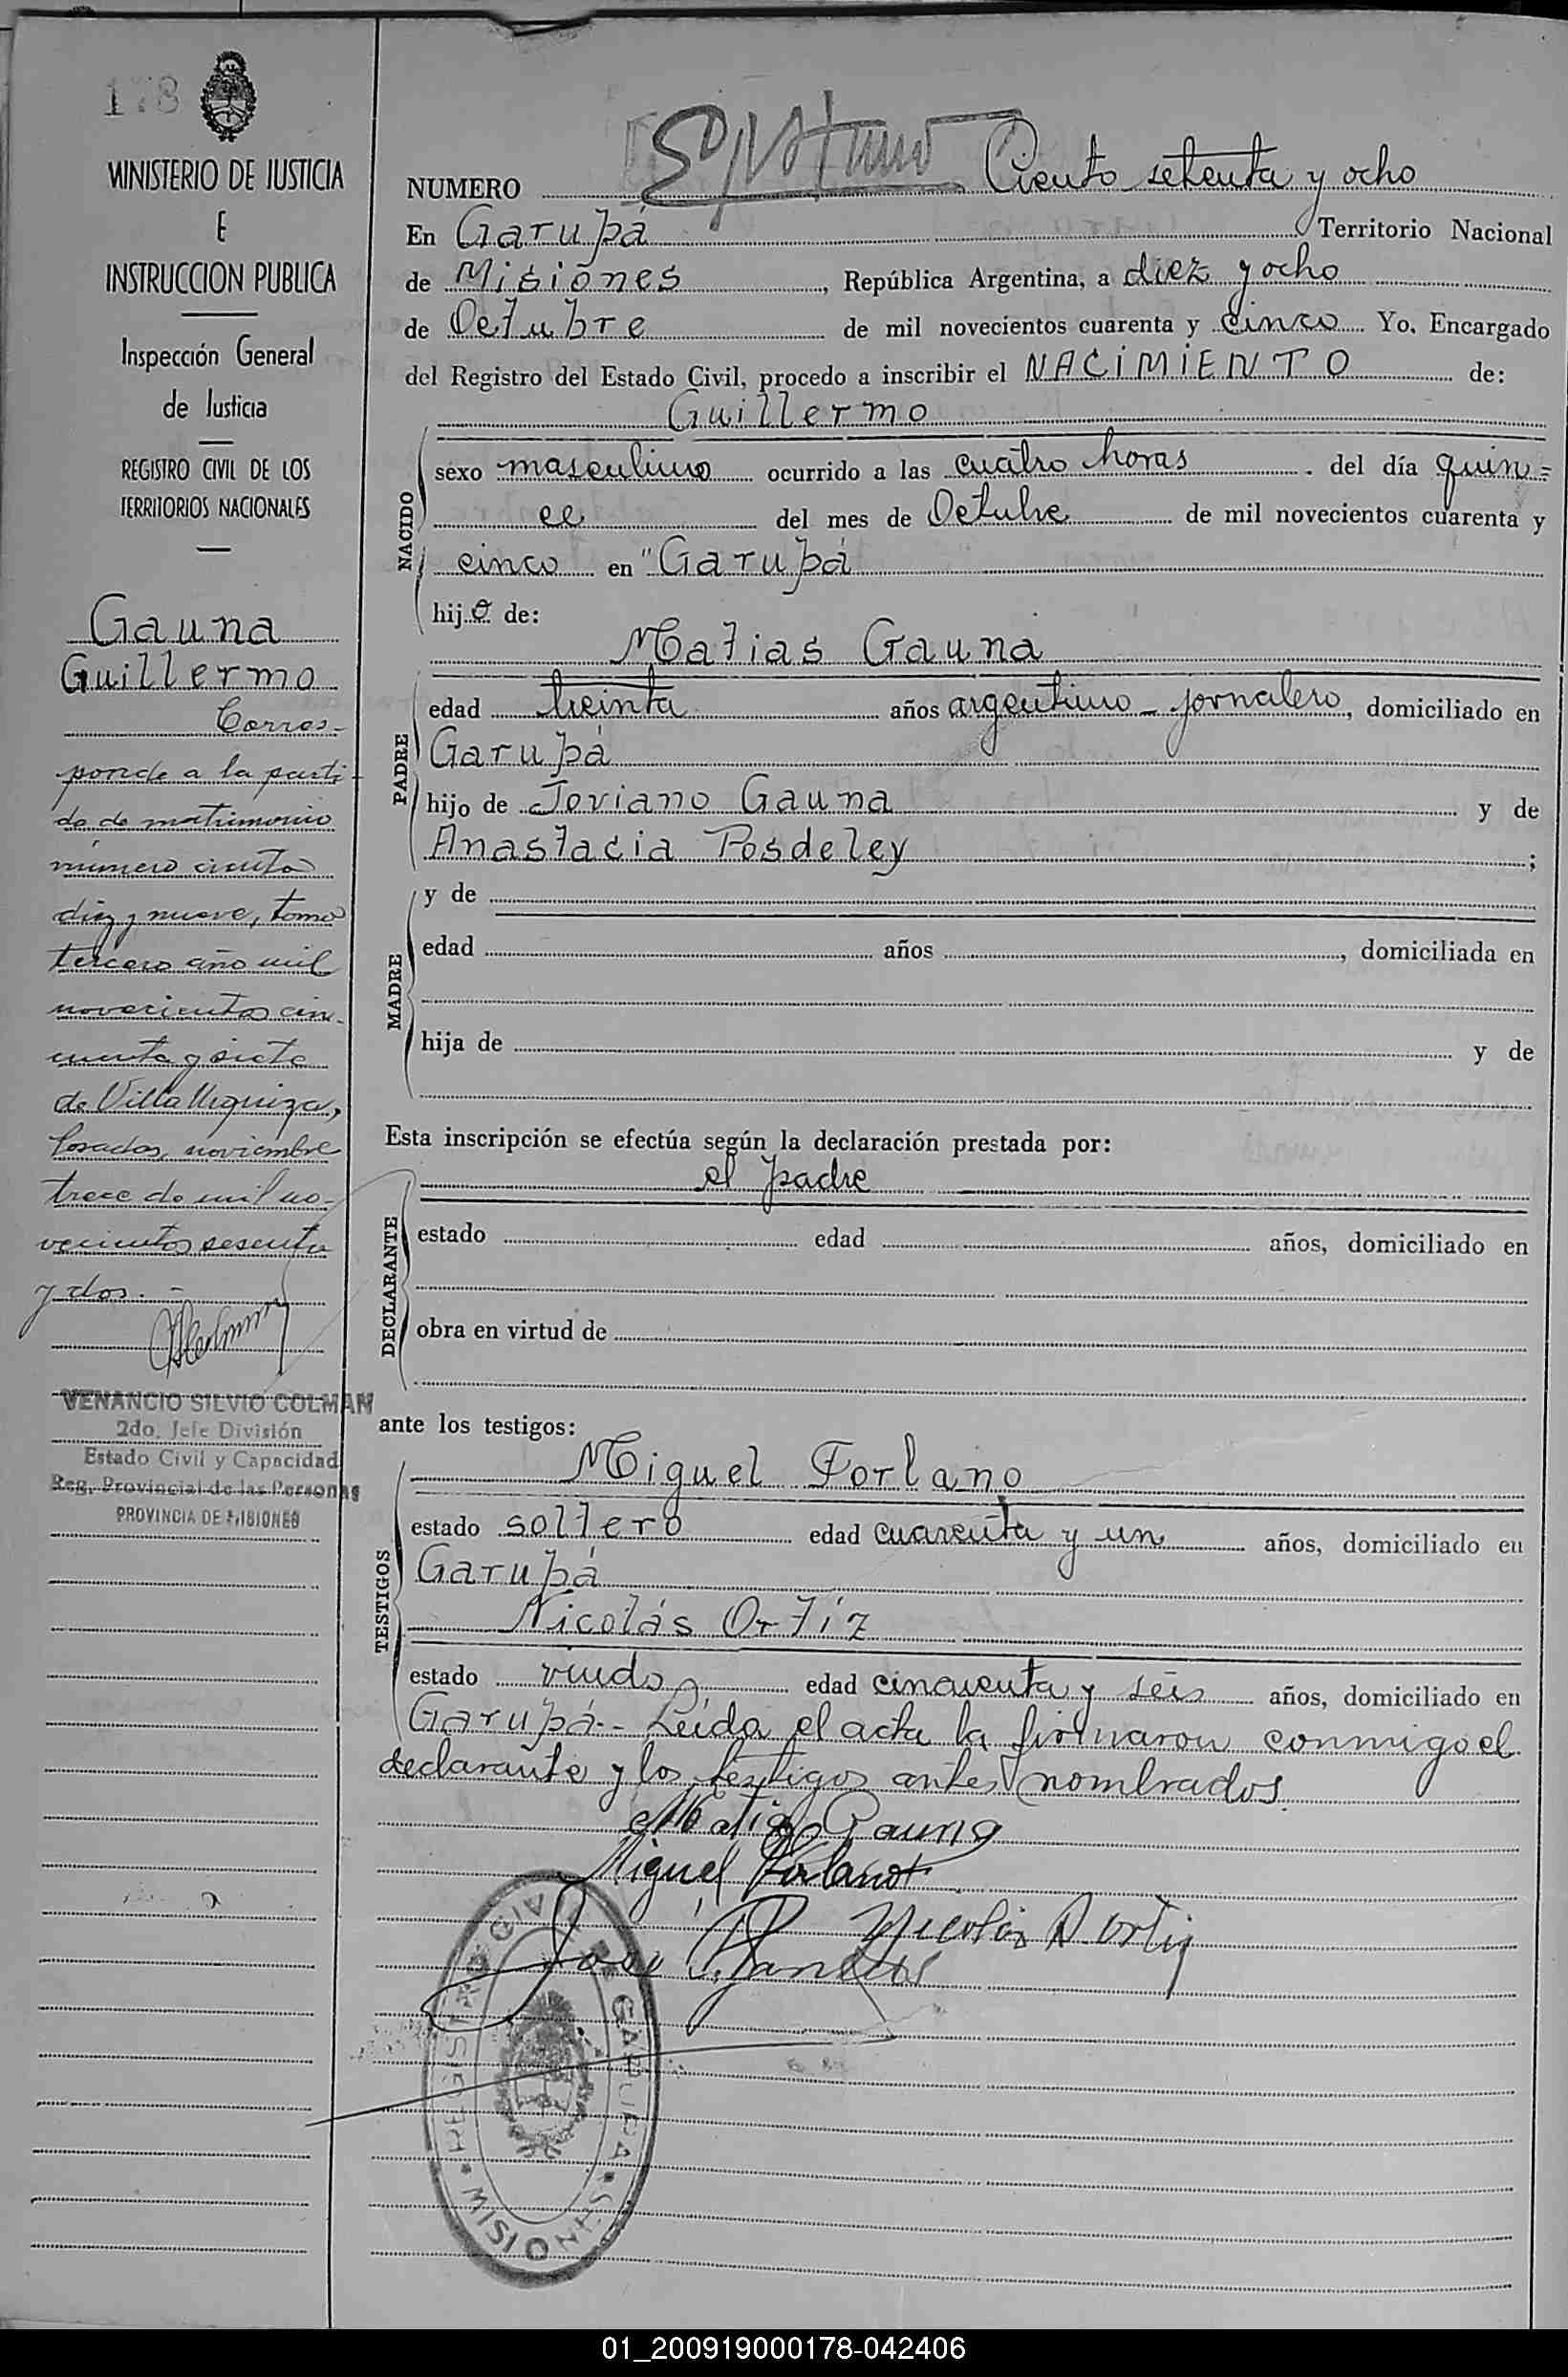 178
MINISTERIO DE JUSTICIA
E
INSTRUCCION PUBLICA
Inspección General
de Justicia
REGISTRO CIVIL DE LOS
TERRITORIOS NACIONALES
Gauna
Guillermo
Corres-
ponde a la parti-
da de matrimonio
número ciento
diez y nueve, tomo
tercero año mil
novecientos cin-
cuenta y siete
de Villa Urquiza,
Posadas, noviembre
trece de mil no-
vecientos sesenta
y dos.-
VENANCIO SILVIO COLMAN
2do. Jefe División
Estado Civil y Capacidad
Reg. Provincial de las Personas
PROVINCIA DE MISIONES
NUMERO Ciento setenta y ocho
En Garupá Territorio Nacional
de Misiones, República Argentina, a diez y ocho
de Octubre de mil novecientos cuarenta y cinco Yo, Encargado
del Registro del Estado Civil, procedo a inscribir el NACIMIENTO de:
Guillermo
NACIDO
sexo masculino ocurrido a las cuatro horas del día quin=
ce del mes de Octubre de mil novecientos cuarenta y
cinco en "Garupá
hijo de:
Matias Gauna
PADRE
edad treinta años argentino - jornalero, domiciliado en
Garupá
hijo de Joviano Gauna y de
Anastacia Posdeley ;
MADRE
y de
edad años , domiciliada en
hija de y de
Esta inscripción se efectúa según la declaración prestada por:
el padre
DECLARANTE
estado edad años, domiciliado en
obra en virtud de
ante los testigos:
TESTIGOS
Miguel Forlano
estado soltero edad cuarenta y un años, domiciliado en
Garupá
Nicolás Ortíz
estado viudo edad cincuenta y seis años, domiciliado en
Garupá.- Leída el acta la firmaron conmigo el
declarante y los testigos antes nombrados.
Matias Gauna
Miguel Forlano
Nicolás A Ortiz
José
REGISTRO CIVIL GARUPA MISIONES
01_200919000178-042406